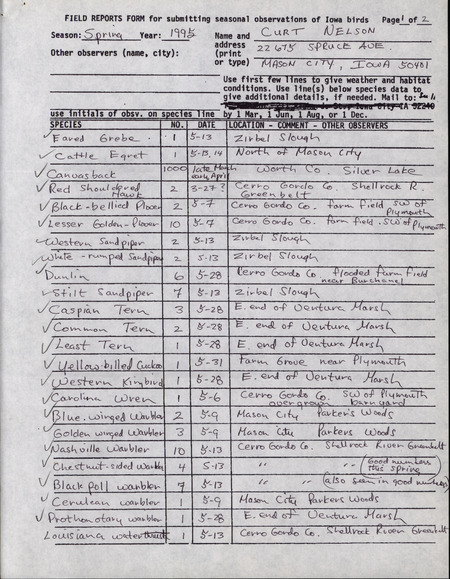 FIELD REPORTS FORM for submitting seasonal observations of Iowa birds Page 1 of 2
Season: Spring Year: 1995 Name and CURT NELSON
address 22675 SPRUCE AVE.
Other observers (name, city): (print
or type) MASON CITY, IOWA 50401
Use first few lines to give weather and habitat
conditions. Use line(s) below species data to
give additional details, if needed. Mail to:
use initials of obsv. on species line by 1 Mar, 1 Jun, 1 Aug, or 1 Dec.
SPECIES NO. DATE LOCATION - COMMENT - OTHER OBSERVERS
✓ Eared Grebe 1 5-13 Zirbel Slough
✓ Cattle Egret 1 5-13, 14 North of Mason City
✓ Canvasback 1000 late March early April Worth Co. Silver Lake
✓ Red Shouldered Hawk 2 3-27 ? Cerro Gordo Co. Shellrock R. Greenbelt
✓ Black-bellied Plover 2 5-7 Cerro Gordo Co. farm field SW of Plymouth
✓ Lesser Golden-Plover 10 5-7 Cerro Gordo Co. farm field. SW of Plymouth
✓ Western Sandpiper 2 5-13 Zirbel Slough
✓ White-rumped Sandpiper 2 5-13 Zirbel Slough
✓ Dunlin 6 5-28 Cerro Gordo Co. flooded farm field near Burchanel
✓ Stilt Sandpiper 7 5-13 Zirbel Slough
✓ Caspian Tern 3 5-28 E. end of Ventura Marsh
✓ Common Tern 2 5-28 E. end of Ventura Marsh
✓ Least Tern 1 5-28 E. end of Ventura Marsh
✓ Yellow-billed Cuckoo 1 5-31 Farm Grove near Plymouth
✓ Western Kingbird 1 5-28 E. end of Ventura Marsh
✓ Carolina Wren 1 5-6 Cerro Gordo Co. SW of Plymouth overgrown barnyard
✓ Blue-winged Warbler 2 5-9 Mason City Parker's Woods
✓ Golden winged Warbler 3 5-9 Mason City Parkers Woods
✓ Nashville Warbler 10 5-13 Cerro Gordo Co. Shellrock River Greenbelt
✓ Chestnut-sided Warbler 4 5-13 " " " (Good numbers this spring)
✓ Black poll warbler 7 5-13 " " " (also seen in good numbers)
✓ Cerulean warbler 1 5-9 Mason City Parkers Woods
✓ Prothonotary warbler 1 5-28 E. end of Ventura Marsh
Louisiana waterthrush 1 5-13 Cerro Gordo Co. Shellrock River Greenbelt